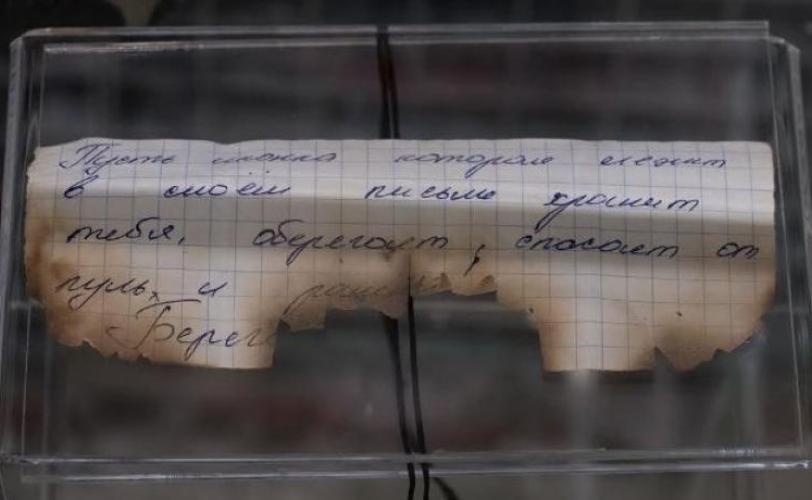 Пусть иконка которая лежит
в моём письме хранит
тебя, оберегает, спасает от
пуль, и ран
Береги